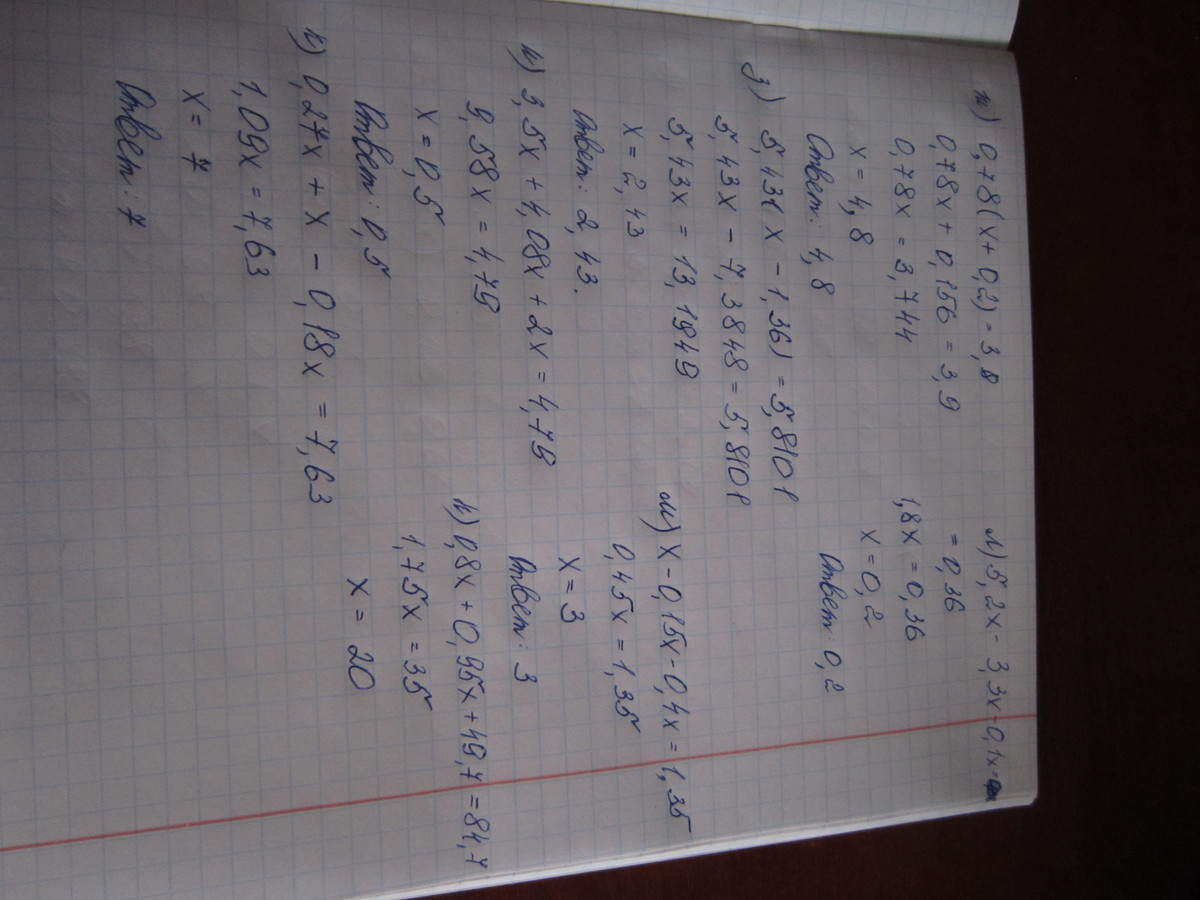 ж) 0,78(x+0,2)=3,9
0,78x+0,156=3,9
0,78x=3,744
x=4,8
Ответ: 4,8
з) 5,43(x-1,36)=5,8101
5,43x-7,3848=5,8101
5,43x=13,1949
x=2,43
Ответ: 2,43.
и) 3,5x+4,08x+2x=4,79
9,58x=4,79
x=0,5
Ответ: 0,5
к) 0,27x+x-0,18x=7,63
1,09x=7,63
x=7
Ответ: 7
л) 5,2x-3,3x-0,1x=
=0,36
1,8x=0,36
x=0,2
Ответ: 0,2
м) x-0,15x-0,4x=1,35
0,45x=1,35
x=3
Ответ: 3
н) 0,8x+0,95x+49,7=84,7
1,75x=35
x=20